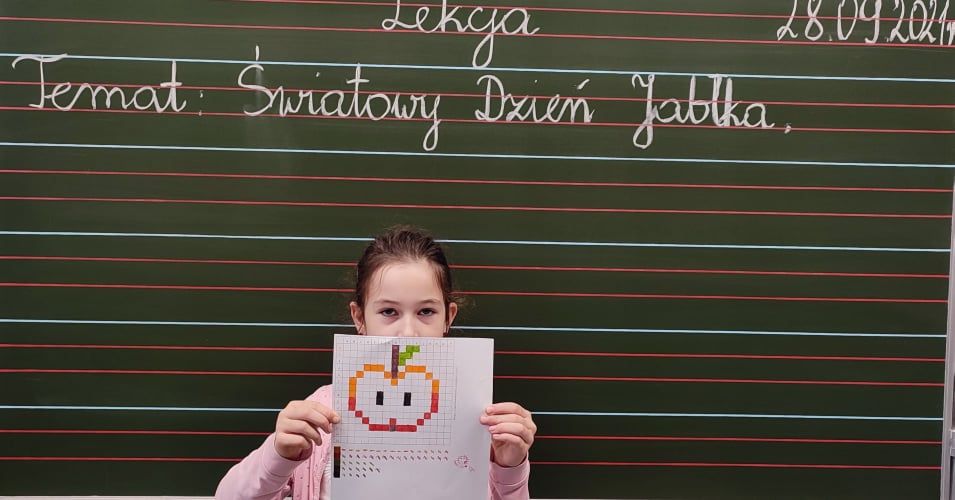 Lekcja 28.09.2021r
Temat: Światowy Dzień Jabłka.